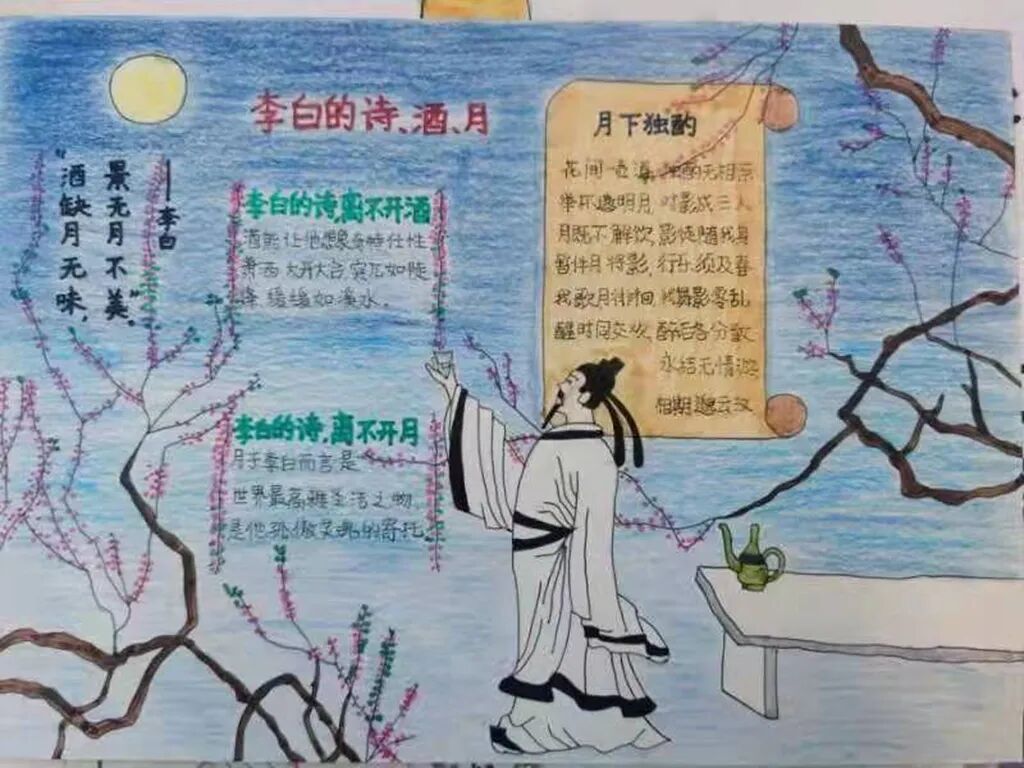 李白的诗、酒、月
"酒缺月无味,
景无月不美。"
——李白
李白的诗,离不开酒
酒能让他想象奇特任性
潇洒大开大合,突兀如陡
峰,缓缓如溪水.
李白的诗,离不开月
月于李白而言是
世界最高雅圣洁之物.
是他孤傲灵魂的寄托.
月下独酌
花间一壶酒,独酌无相亲
举杯邀明月,对影成三人
月既不解饮,影徒随我身
暂伴月将影,行乐须及春
我歌月徘徊,我舞影零乱
醒时同交欢,醉后各分散
永结无情游
相期邈云汉